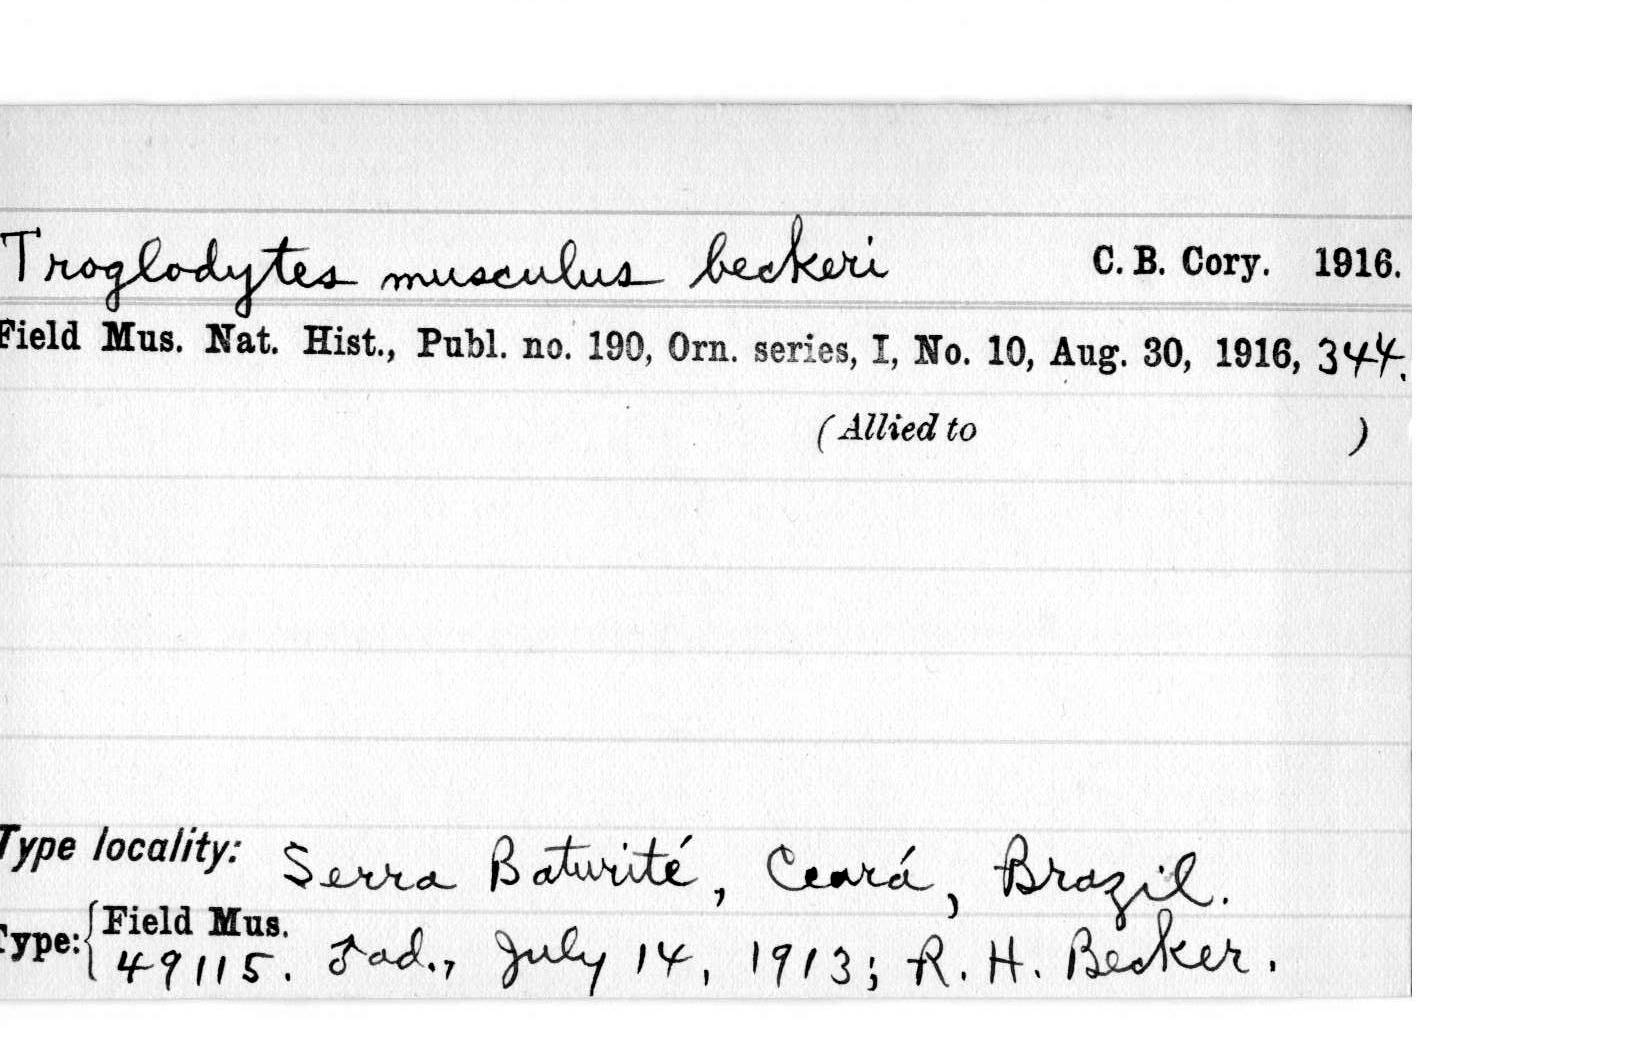 Troglodytes musculus beckeri C. B. Cory. 1916.
Field Mus. Nat. Hist., Publ. no. 190, Orn. series, I, No. 10, Aug. 30, 1916, 344.
(Allied to )
Type locality: Serra Baturité, Ceará, Brazil.
Type: { Field Mus.
49115. ♂ ad., July 14, 1913; R. H. Becker.